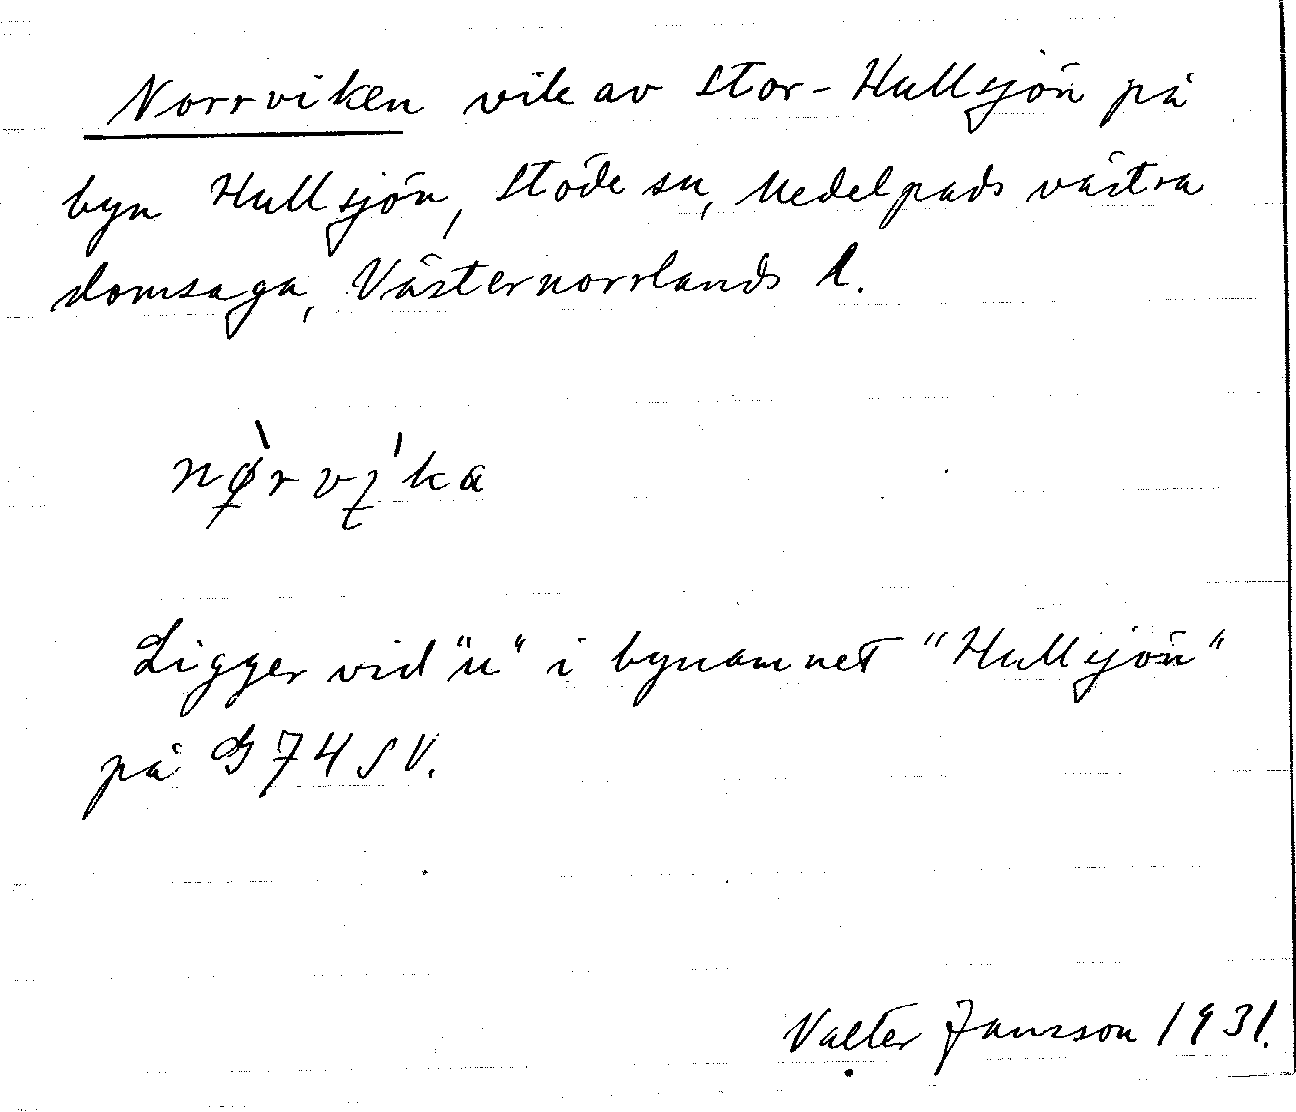 Norrviken vik av Stor-Hullsjön på
byn Hullsjön, Stöde sn, Medelpads västra
domsaga, Västernorrlands l.
nø̀rvi̩ka
Ligger vid "u" i bynamnet "Hullsjön"
på G 74 SV.
Valter Jansson 1931.